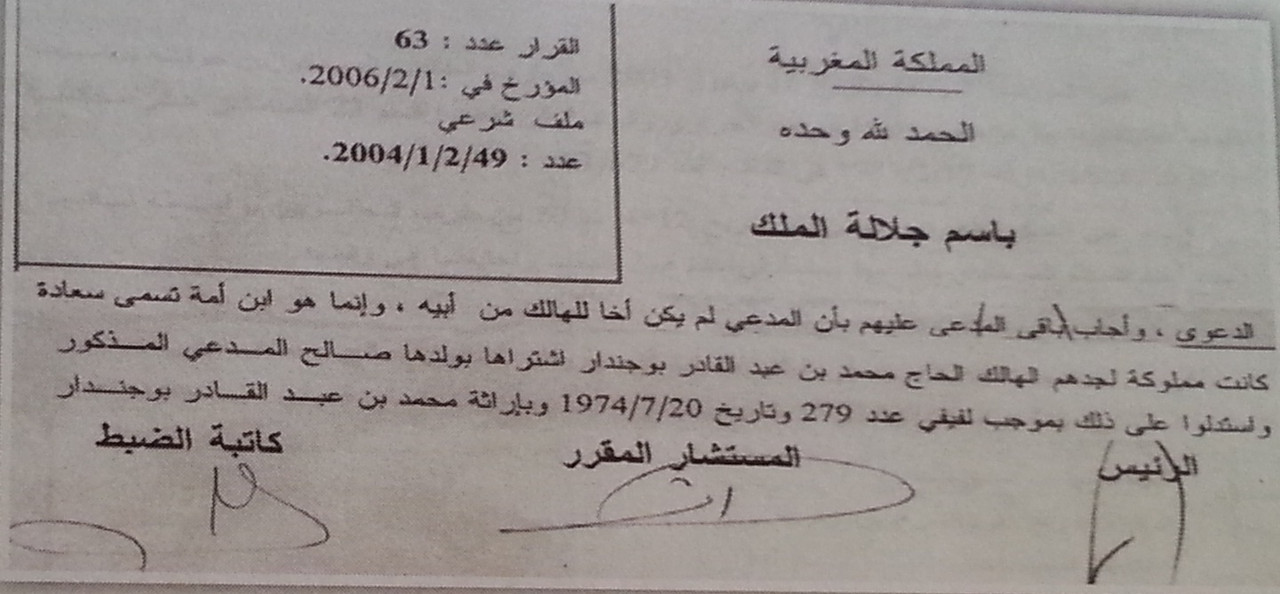 المملكة المغربية
الحمد لله وحده
باسم جلالة الملك
القرار عدد : 63
المؤرخ في :2006/2/1.
ملف شرعي
عدد : 2004/1/2/49.
الدعوى ، وأجاب باقي المدعى عليهم بأن المدعي لم يكن أخا للهالك من أبيه ، وإنما هو ابن أمة تسمى سعادة
كانت مملوكة لجدهم الهالك الحاج محمد بن عبد القادر بوجندار اشتراها بولدها صالح المدعي المذكور
واستدلوا على ذلك بموجب لفيفي عدد 279 وتاريخ 1974/7/20 وبإراثة محمد بن عبد القادر بوجندار
الرئيس المستشار المقرر كاتبة الضبط